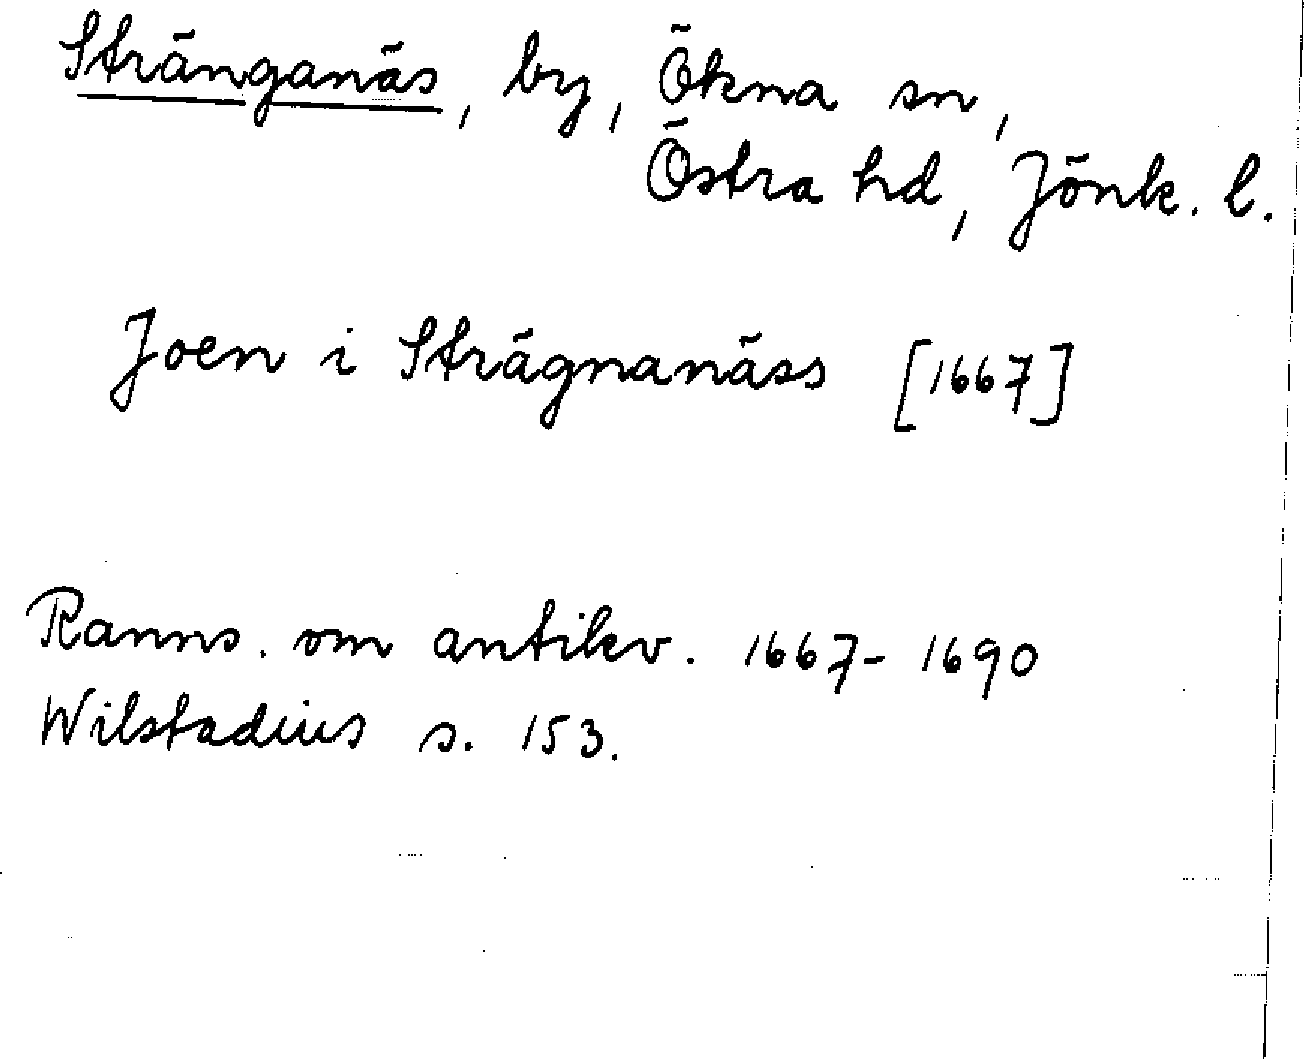 Stränganäs, by, Ökna sn,
Östra hd, Jönk. l.
Joen i Strägnanäss [1667]
Ranns. om antikv. 1667-1690
Wilstadius s. 153.